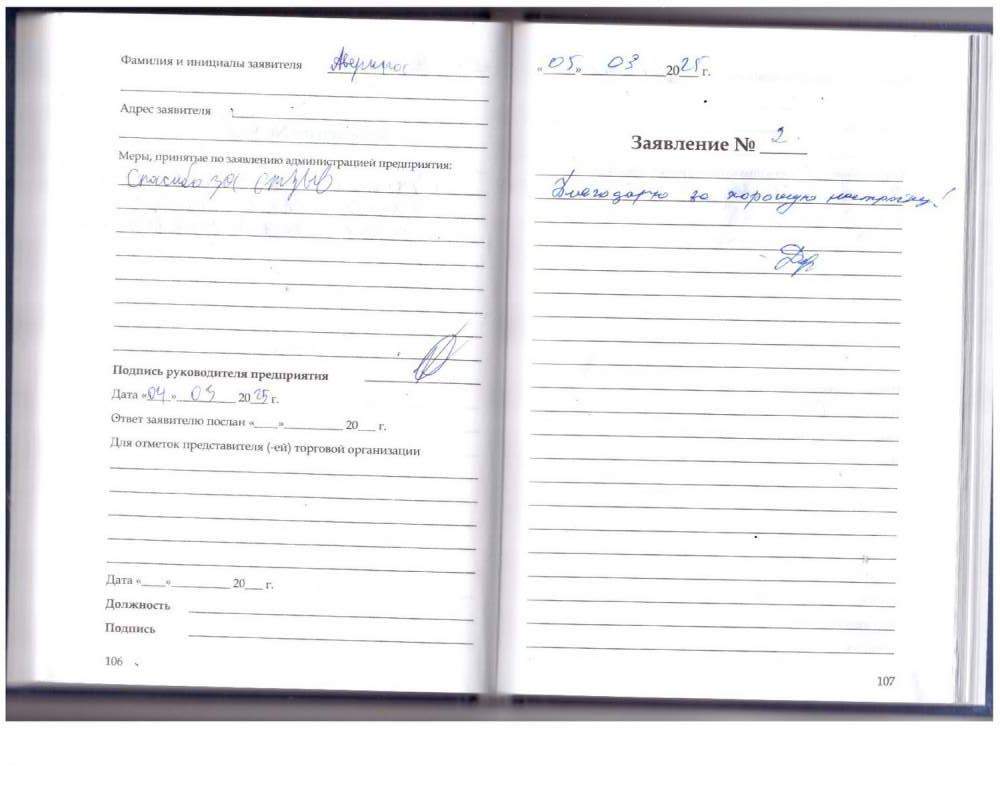 Фамилия и инициалы заявителя
Адрес заявителя
Меры, принятые по заявлению администрацией предприятия:
Спасибо за отзыв
Подпись руководителя предприятия
Дата «04» 03 2025 г.
Ответ заявителю послан «____»__________ 20___ г.
Для отметок представителя (-ей) торговой организации
Дата «____»__________ 20___ г.
Должность
Подпись
106
«05» 03 2025 г.
Заявление № 2
Благодарю за хорошую настройку!
107